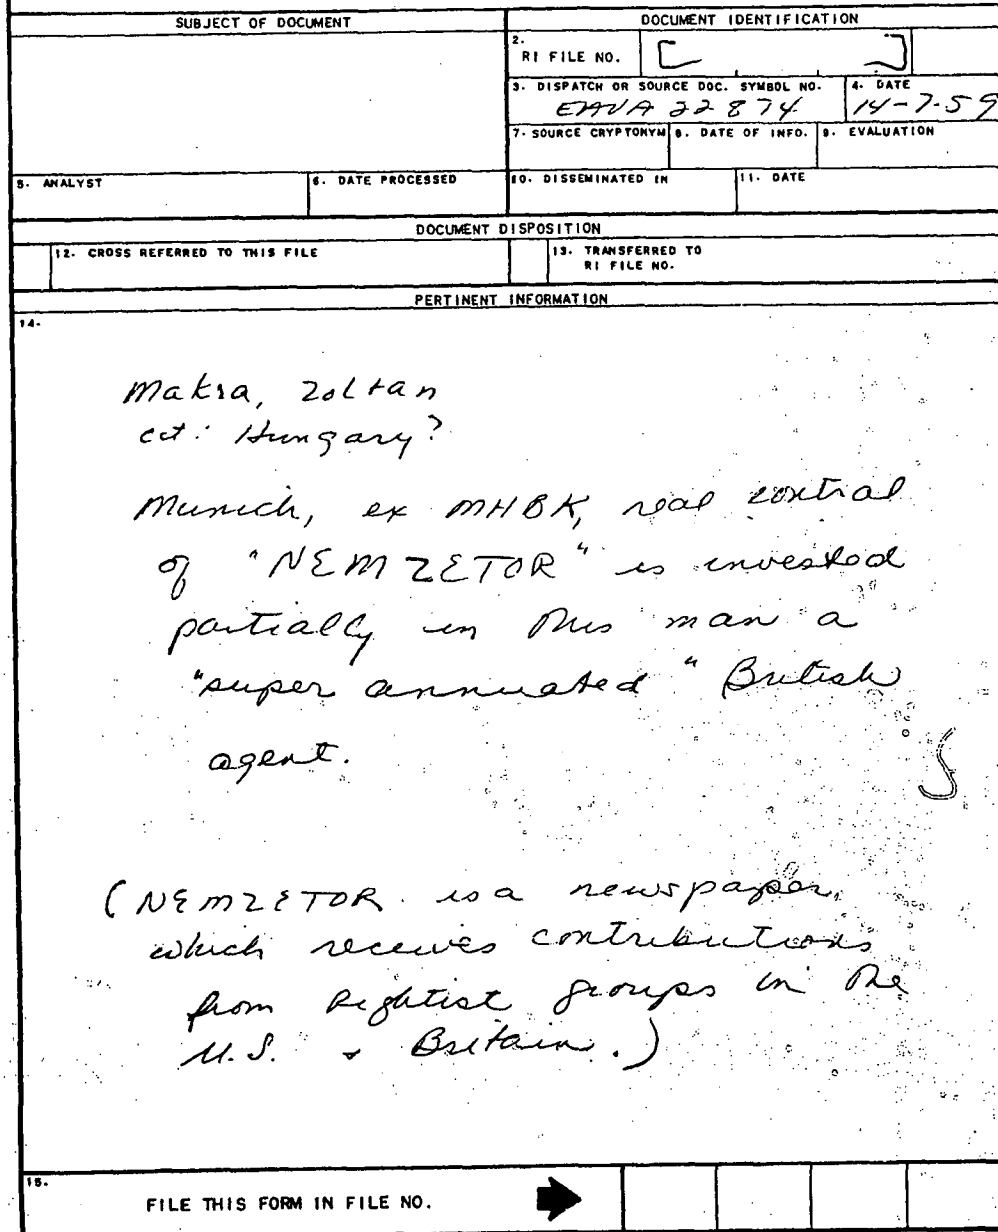 SUBJECT OF DOCUMENT
DOCUMENT IDENTIFICATION
2.
RI FILE NO.
3. DISPATCH OR SOURCE DOC. SYMBOL NO.
EAVA 22874
4. DATE
14-7-59
7. SOURCE CRYPTONYM
8. DATE OF INFO.
9. EVALUATION
5. ANALYST
6. DATE PROCESSED
10. DISSEMINATED IN
11. DATE
DOCUMENT DISPOSITION
12. CROSS REFERRED TO THIS FILE
13. TRANSFERRED TO
RI FILE NO.
PERTINENT INFORMATION
14.
Makra, Zoltan
cit: Hungary?
Munich, ex MHBK, real control
of "NEMZETOR" is invested
partially in this man a
"super annuated" British
agent.
(NEMZETOR is a newspaper,
which receives contributions
from Rightist groups in the
U.S. & Britain.)
15.
FILE THIS FORM IN FILE NO.